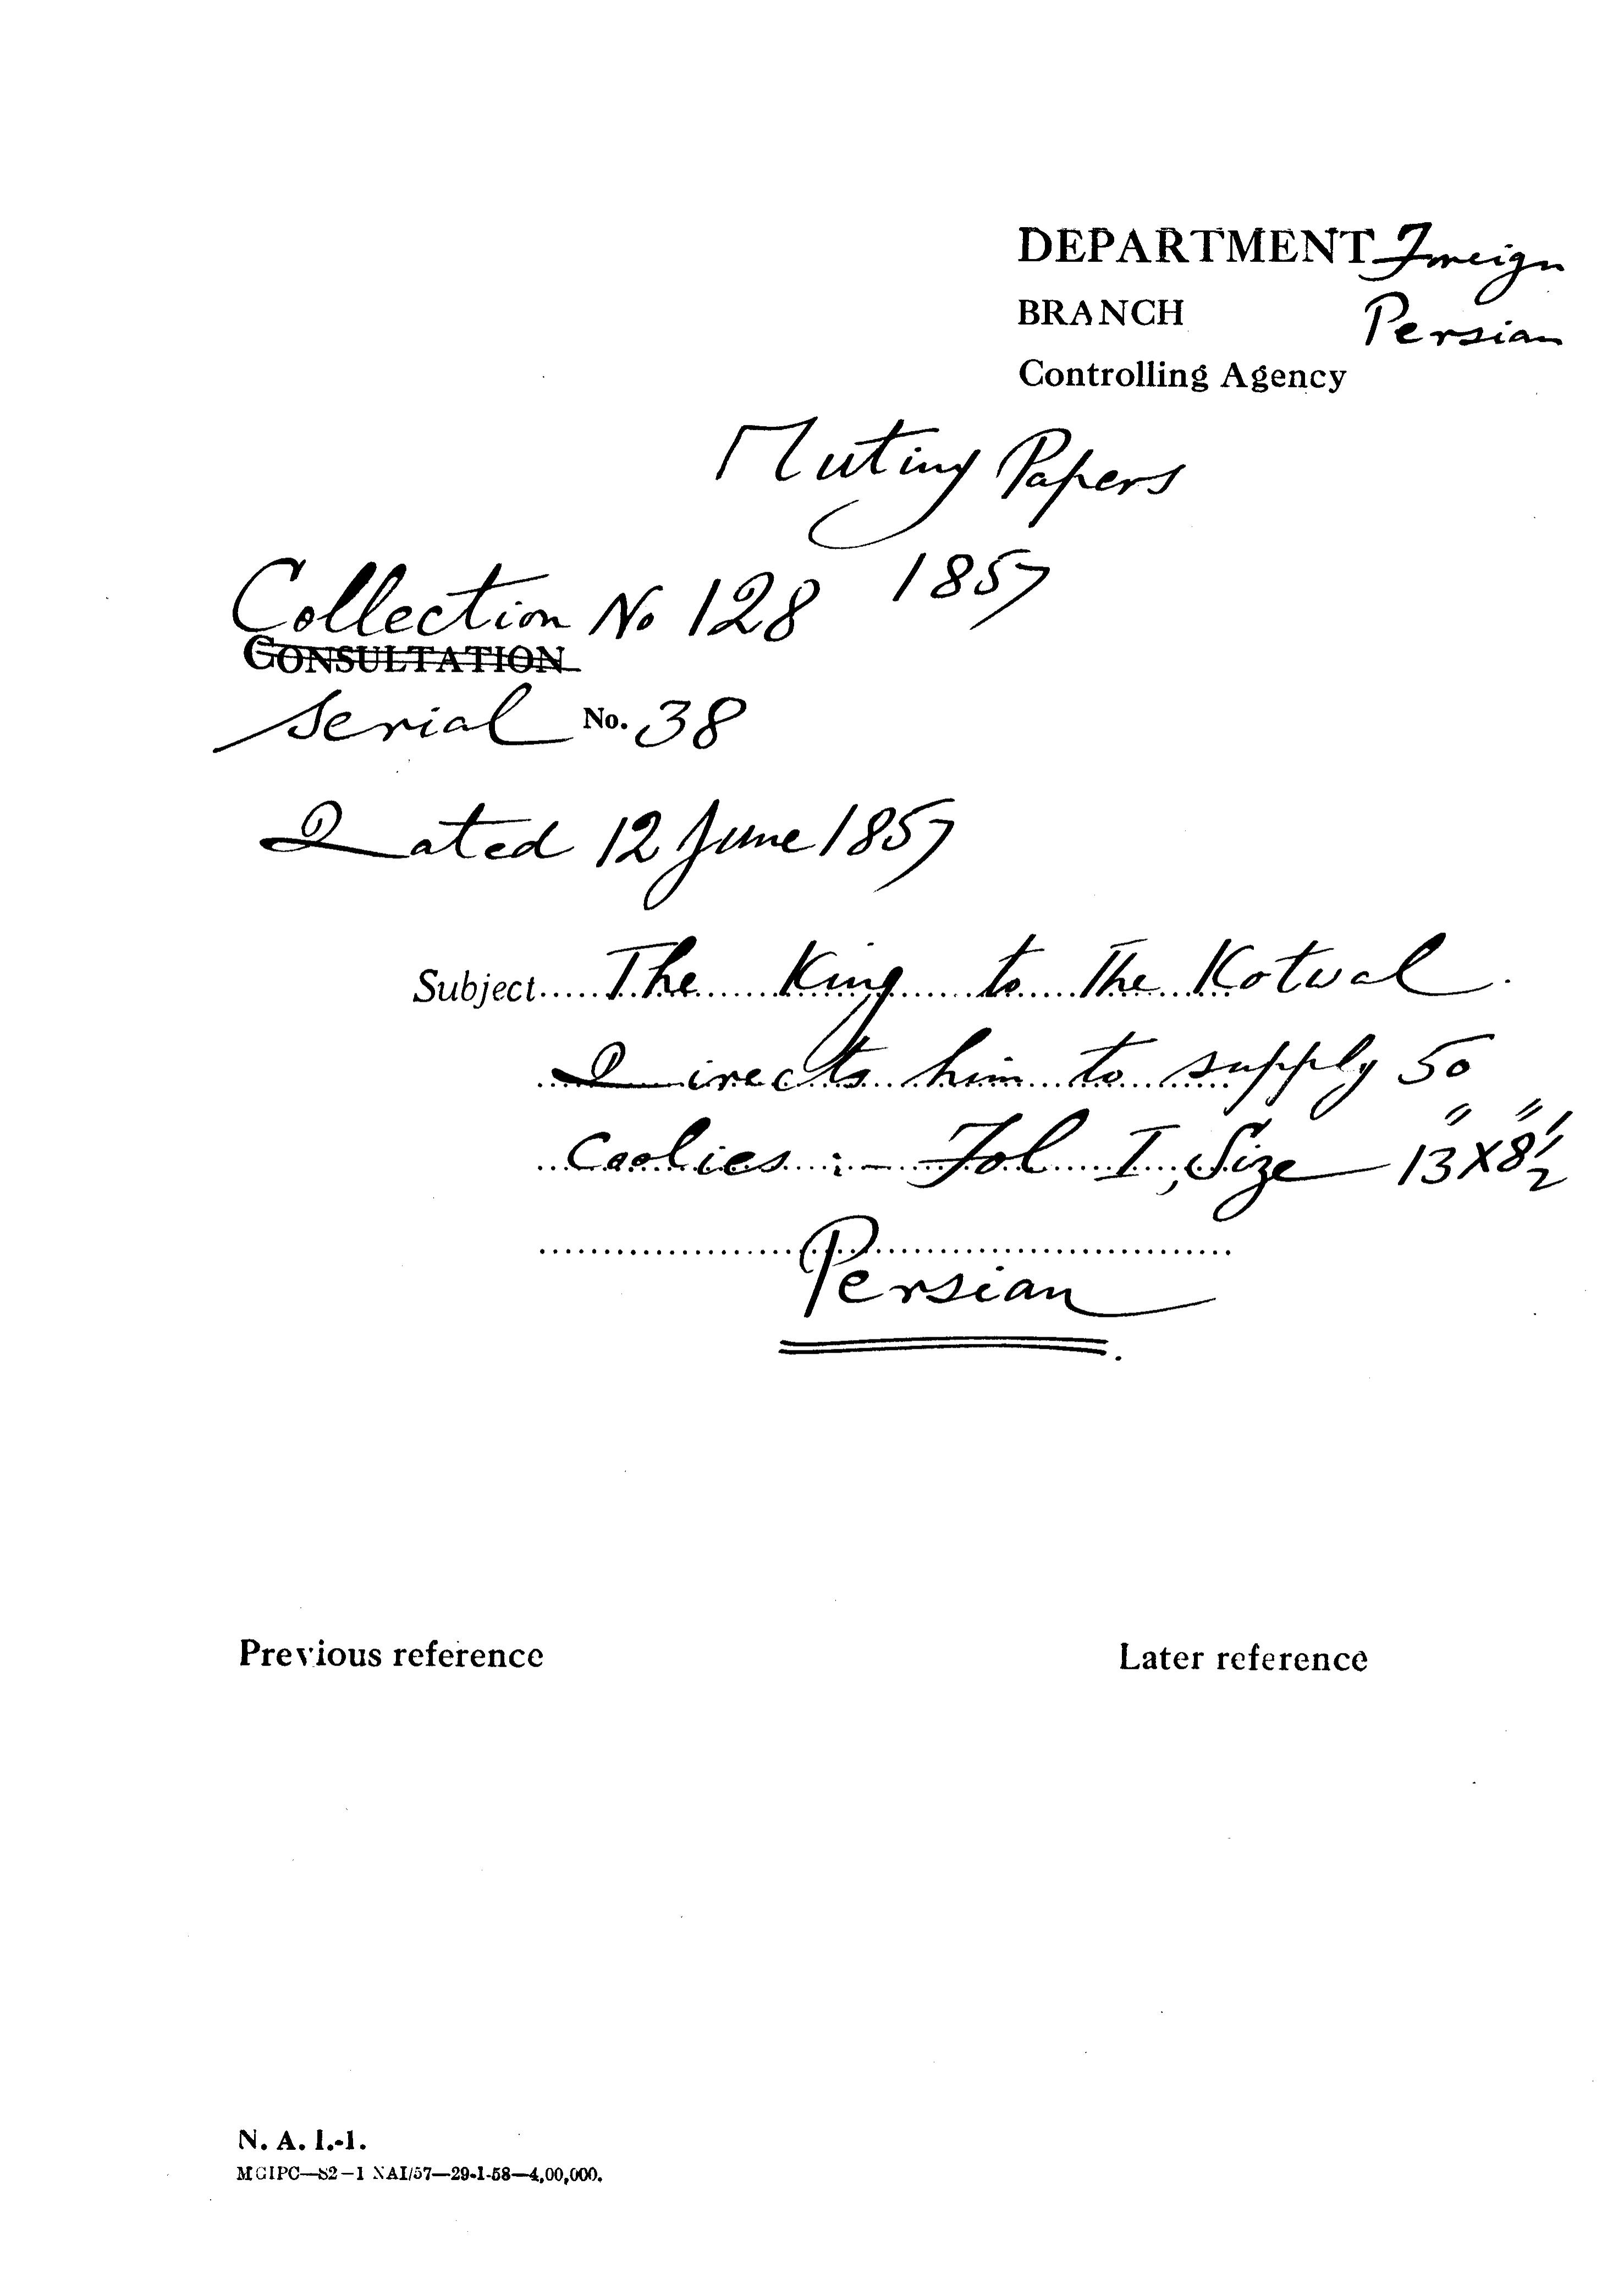 DEPARTMENT Foreign
BRANCH Persian
Controlling Agency
Mutiny Papers
1857
Collection No 128
CONSULTATION
Serial No. 38
Dated 12 June 1857
Subject..... The King to The Kotwal.
Directs him to supply 50
Coolies :- Fol I, Size 13" X 8½"
Persian
Previous reference Later reference
N. A. I.-1.
MGIPC—S2—1 NAI/57—29-1-58—4,00,000.